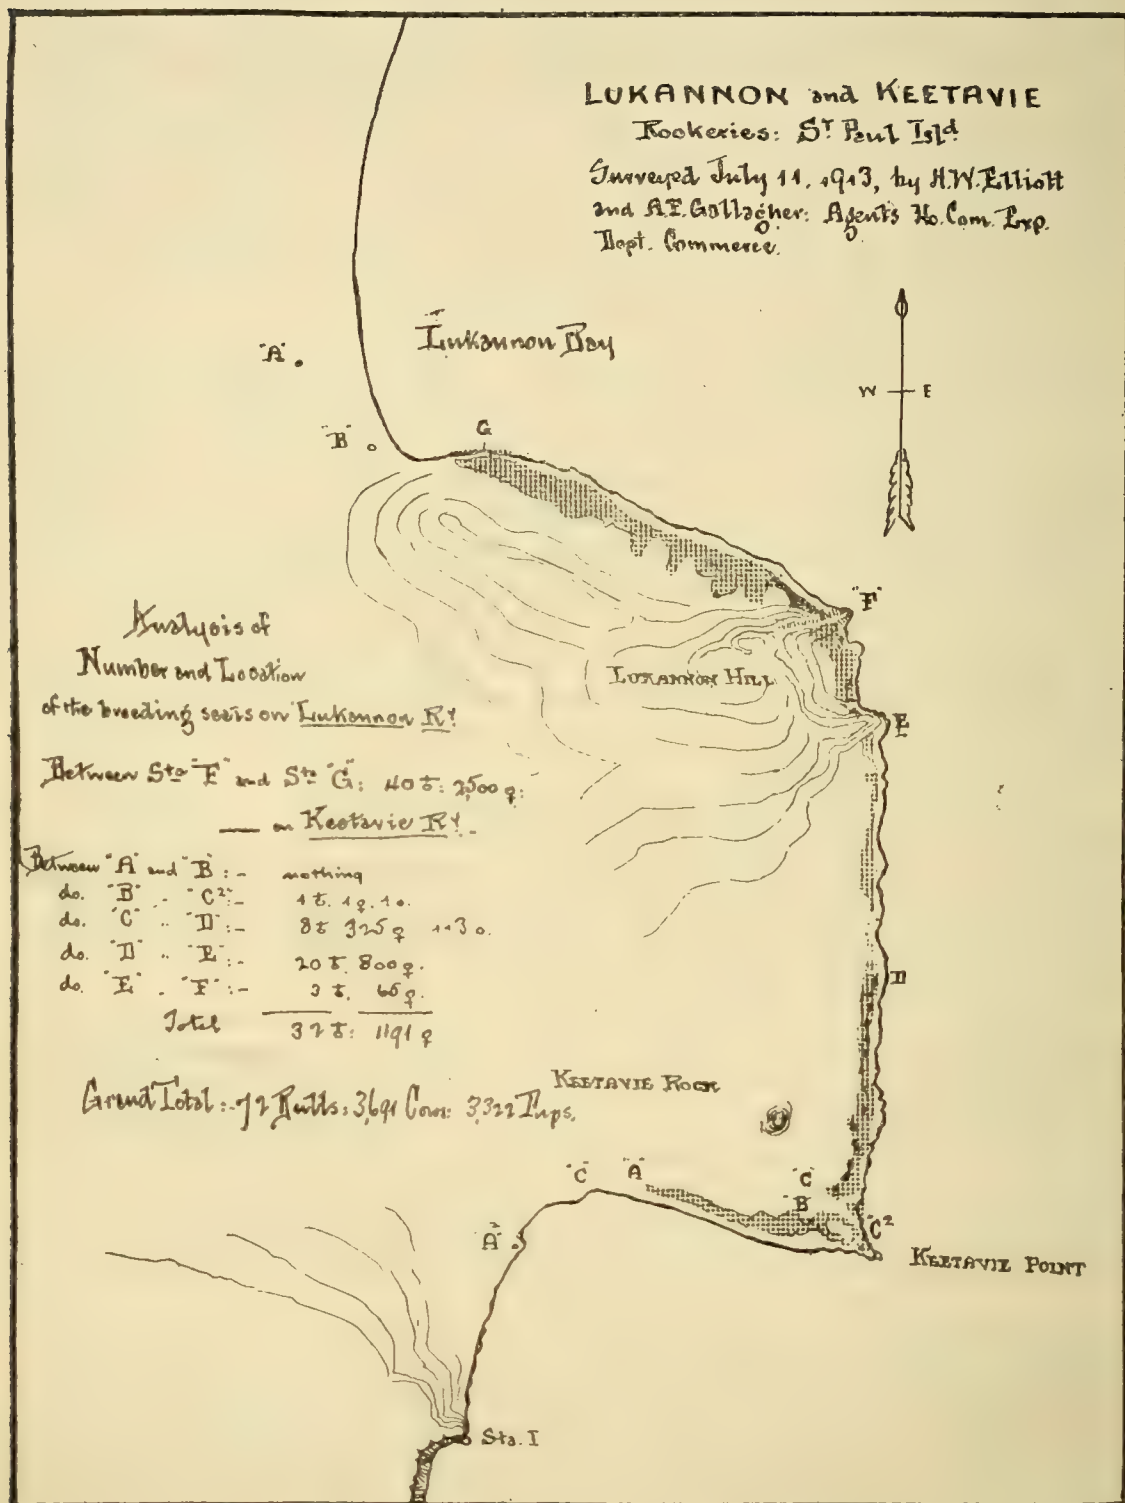 LUKANNON and KEETAVIE
Rookeries: St Paul Isld.
Surveyed July 11, 1913, by H.W. Elliott
and A.F. Gallagher: Agents Ho. Com. Exp.
Dept. Commerce.
Lukannon Bay
"A"
W E
"B"
G
"F"
Analysis of
Number and Location
of the breeding seals on Lukannon Ry.
LUKANNON HILL
E
Between Sta "F" and Sta "G": 40 ♂: 2,500 ♀:
— on Keetavie Ry.
Between "A" and "B":- nothing
do. "B" .. "C²":- 1 ♂. 1 ♀. 1 o.
do. "C" .. "D":- 8 ♂ 325 ♀ 113 o.
do. "D" .. "E":- 20 ♂. 800 ♀.
do. "E" . "F":- 3 ♂. 65 ♀.
Total 32 ♂: 1191 ♀
D
KEETAVIE ROCK
Grand Total:- 72 Bulls: 3,691 Cows: 3,322 Pups.
"C" "A"
"C"
"B"
"C²
"A²"
KEETAVIE POINT
Sta. I